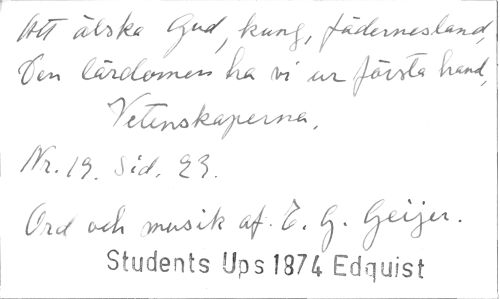 Att älska Gud, kung, fädernesland,
Den lärdomen ha vi ur första hand,
Vetenskaperna.
Nr. 19. Sid. 23.
Ord och musik af. E. G. Geijer.
Students Ups 1874 Edquist